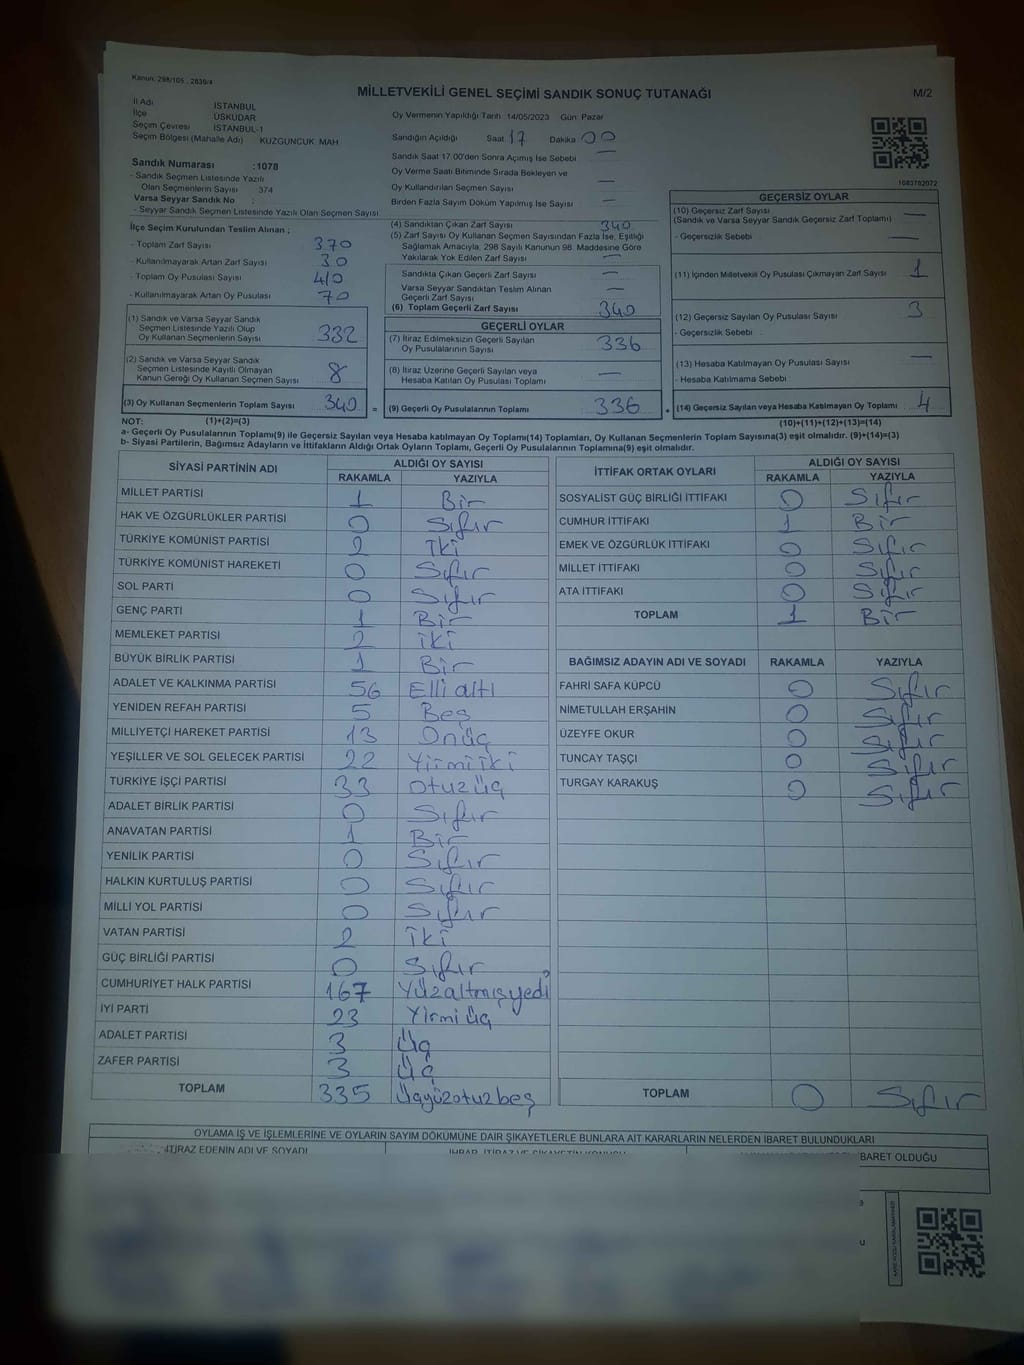 Kanun: 298/105 , 2839/4
MİLLETVEKİLİ GENEL SEÇİMİ SANDIK SONUÇ TUTANAĞI
M/2
İl Adı İSTANBUL
İlçe ÜSKÜDAR
Seçim Çevresi İSTANBUL-1
Seçim Bölgesi (Mahalle Adı) KUZGUNCUK MAH
Sandık Numarası :1078
- Sandık Seçmen Listesinde Yazılı
Olan Seçmenlerin Sayısı 374
Varsa Seyyar Sandık No :
- Seyyar Sandık Seçmen Listesinde Yazılı Olan Seçmen Sayısı
İlçe Seçim Kurulundan Teslim Alınan ;
- Toplam Zarf Sayısı 370
- Kullanılmayarak Artan Zarf Sayısı 30
- Toplam Oy Pusulası Sayısı 410
- Kullanılmayarak Artan Oy Pusulası 70
(1) Sandık ve Varsa Seyyar Sandık
Seçmen Listesinde Yazılı Olup
Oy Kullanan Seçmenlerin Sayısı 332
(2) Sandık ve Varsa Seyyar Sandık
Seçmen Listesinde Kayıtlı Olmayan
Kanun Gereği Oy Kullanan Seçmen Sayısı 8
(3) Oy Kullanan Seçmenlerin Toplam Sayısı 340 =
Oy Vermenin Yapıldığı Tarih 14/05/2023 Gün: Pazar
Sandığın Açıldığı Saat 17 Dakika 00
Sandık Saat 17.00'den Sonra Açımış İse Sebebi —
Oy Verme Saati Bitiminde Sırada Bekleyen ve
Oy Kullandırılan Seçmen Sayısı —
Birden Fazla Sayım Döküm Yapılmış İse Sayısı —
(4) Sandıktan Çıkan Zarf Sayısı 340
(5) Zarf Sayısı Oy Kullanan Seçmen Sayısından Fazla İse, Eşitliği
Sağlamak Amacıyla, 298 Sayılı Kanunun 98. Maddesine Göre
Yakılarak Yok Edilen Zarf Sayısı —
Sandıkta Çıkan Geçerli Zarf Sayısı —
Varsa Seyyar Sandıktan Teslim Alınan
Geçerli Zarf Sayısı —
(6) Toplam Geçerli Zarf Sayısı 340
GEÇERLİ OYLAR
(7) İtiraz Edilmeksizin Geçerli Sayılan
Oy Pusulalarının Sayısı 336
(8) İtiraz Üzerine Geçerli Sayılan veya
Hesaba Katılan Oy Pusulası Toplamı —
(9) Geçerli Oy Pusulalarının Toplamı 336
1083782072
GEÇERSİZ OYLAR
(10) Geçersiz Zarf Sayısı —
(Sandık ve Varsa Seyyar Sandık Geçersiz Zarf Toplamı)
- Geçersizlik Sebebi —
(11) İçinden Milletvekili Oy Pusulası Çıkmayan Zarf Sayısı 1
(12) Geçersiz Sayılan Oy Pusulası Sayısı 3
- Geçersizlik Sebebi
(13) Hesaba Katılmayan Oy Pusulası Sayısı —
- Hesaba Katılmama Sebebi
(14) Geçersiz Sayılan veya Hesaba Katılmayan Oy Toplamı 4
NOT: (1)+(2)=(3)
(10)+(11)+(12)+(13)=(14)
a- Geçerli Oy Pusulalarının Toplamı(9) ile Geçersiz Sayılan veya Hesaba katılmayan Oy Toplamı(14) Toplamları, Oy Kullanan Seçmenlerin Toplam Sayısına(3) eşit olmalıdır. (9)+(14)=(3)
b- Siyasi Partilerin, Bağımsız Adayların ve İttifakların Aldığı Ortak Oyların Toplamı, Geçerli Oy Pusulalarının Toplamına(9) eşit olmalıdır.
SİYASİ PARTİNİN ADI ALDIĞI OY SAYISI
RAKAMLA YAZIYLA
MİLLET PARTİSİ 1 Bir
HAK VE ÖZGÜRLÜKLER PARTİSİ 0 Sıfır
TÜRKİYE KOMÜNİST PARTİSİ 2 İki
TÜRKİYE KOMÜNİST HAREKETİ 0 Sıfır
SOL PARTİ 0 Sıfır
GENÇ PARTİ 1 Bir
MEMLEKET PARTİSİ 2 iki
BÜYÜK BİRLİK PARTİSİ 1 Bir
ADALET VE KALKINMA PARTİSİ 56 Elli altı
YENİDEN REFAH PARTİSİ 5 Beş
MİLLİYETÇİ HAREKET PARTİSİ 13 Onüç
YEŞİLLER VE SOL GELECEK PARTİSİ 22 Yirmi iki
TÜRKİYE İŞÇİ PARTİSİ 33 Otuz üç
ADALET BİRLİK PARTİSİ 0 Sıfır
ANAVATAN PARTİSİ 1 Bir
YENİLİK PARTİSİ 0 Sıfır
HALKIN KURTULUŞ PARTİSİ 0 Sıfır
MİLLİ YOL PARTİSİ 0 Sıfır
VATAN PARTİSİ 2 İki
GÜÇ BİRLİĞİ PARTİSİ 0 Sıfır
CUMHURİYET HALK PARTİSİ 167 Yüzaltmışyedi
İYİ PARTİ 23 Yirmi üç
ADALET PARTİSİ 3 Üç
ZAFER PARTİSİ 3 Üç
TOPLAM 335 Üçyüzotuzbeş
İTTİFAK ORTAK OYLARI ALDIĞI OY SAYISI
RAKAMLA YAZIYLA
SOSYALİST GÜÇ BİRLİĞİ İTTİFAKI 0 Sıfır
CUMHUR İTTİFAKI 1 Bir
EMEK VE ÖZGÜRLÜK İTTİFAKI 0 Sıfır
MİLLET İTTİFAKI 0 Sıfır
ATA İTTİFAKI 0 Sıfır
TOPLAM 1 Bir
BAĞIMSIZ ADAYIN ADI VE SOYADI RAKAMLA YAZIYLA
FAHRİ SAFA KÜPCÜ 0 Sıfır
NİMETULLAH ERŞAHİN 0 Sıfır
ÜZEYFE OKUR 0 Sıfır
TUNCAY TAŞÇI 0 Sıfır
TURGAY KARAKUŞ 0 Sıfır
TOPLAM 0 Sıfır
OYLAMA İŞ VE İŞLEMLERİNE VE OYLARIN SAYIM DÖKÜMÜNE DAİR ŞİKAYETLERLE BUNLARA AİT KARARLARIN NELERDEN İBARET BULUNDUKLARI
İTİRAZ EDENİN ADI VE SOYADI
BARET OLDUĞU